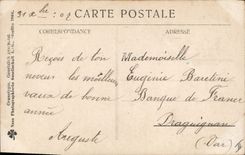 31 Xbre 09
CARTE POSTALE
CORRESPONDANCE
ADRESSE
Reçois de ton
neveu les meilleurs
vœux de bonne
année
Auguste
Mademoiselle
Eugénie Baretini
Banque de France
Draguignan
(Var)